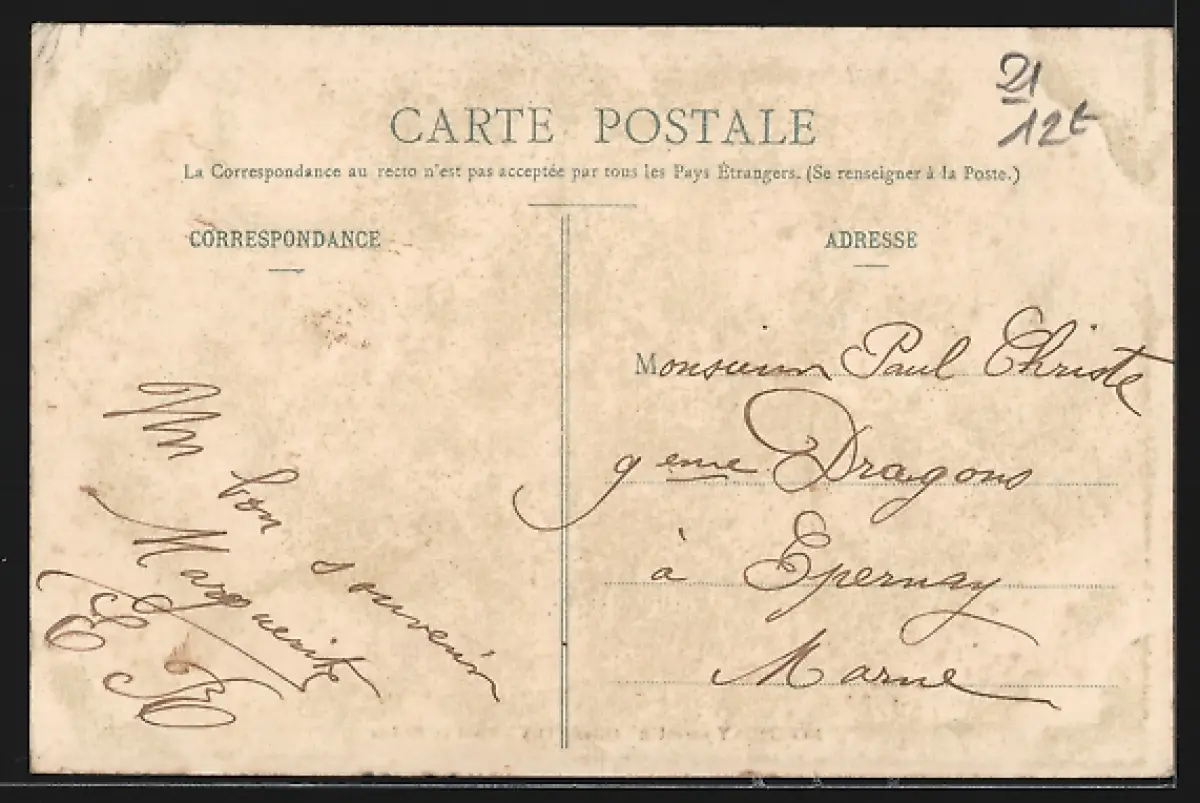 21
12€
CARTE POSTALE
La Correspondance au recto n'est pas acceptée par tous les Pays Étrangers. (Se renseigner à la Poste.)
CORRESPONDANCE
Un bon souvenir
Marguerite
ADRESSE
Monsieur Paul Christe
9eme Dragons
à Epernay
Marne